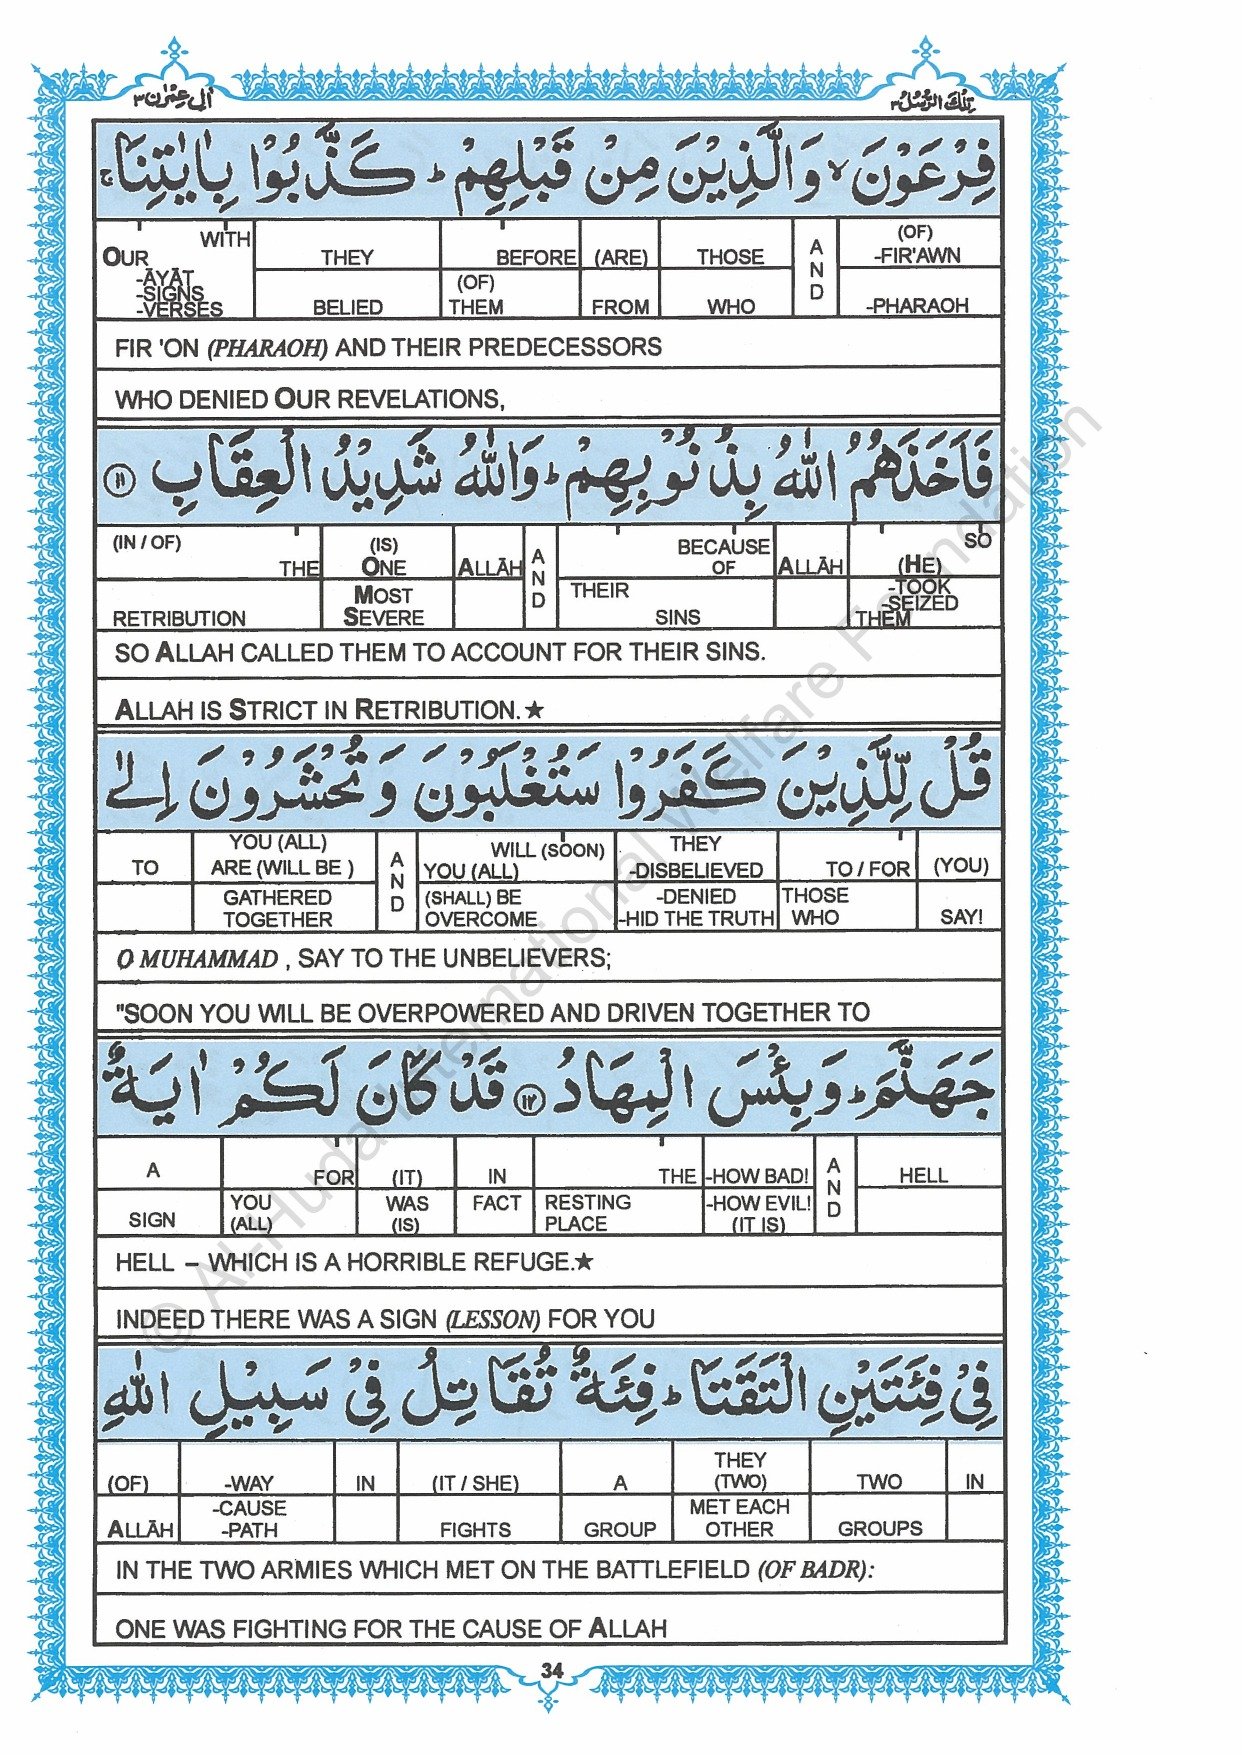 اٰل عِمْرٰن ٣
تِلْكَ الرُّسُلُ ٣
فِرْعَوْنَ ۙ وَالَّذِيْنَ مِنْ قَبْلِهِمْ ؕ كَذَّبُوْا بِاٰيٰتِنَا ۚ
WITH OUR -ĀYĀT -SIGNS -VERSES | THEY BELIED | BEFORE (OF) THEM | (ARE) FROM | THOSE WHO | AND | (OF) -FIR'AWN -PHARAOH
FIR 'ON (PHARAOH) AND THEIR PREDECESSORS
WHO DENIED OUR REVELATIONS,
فَاَخَذَهُمُ اللّٰهُ بِذُنُوْبِهِمْ ؕ وَاللّٰهُ شَدِيْدُ الْعِقَابِ ١١
(IN / OF) THE RETRIBUTION | (IS) ONE MOST SEVERE | ALLĀH | AND | BECAUSE OF THEIR SINS | ALLĀH | SO (HE) -TOOK -SEIZED THEM
SO ALLAH CALLED THEM TO ACCOUNT FOR THEIR SINS.
ALLAH IS STRICT IN RETRIBUTION.★
قُلْ لِّلَّذِيْنَ كَفَرُوْا سَتُغْلَبُوْنَ وَتُحْشَرُوْنَ اِلٰى
TO | YOU (ALL) ARE (WILL BE ) GATHERED TOGETHER | AND | WILL (SOON) YOU (ALL) (SHALL) BE OVERCOME | THEY -DISBELIEVED -DENIED -HID THE TRUTH | TO / FOR THOSE WHO | (YOU) SAY!
O MUHAMMAD , SAY TO THE UNBELIEVERS;
"SOON YOU WILL BE OVERPOWERED AND DRIVEN TOGETHER TO
جَهَنَّمَ ؕ وَبِئْسَ الْمِهَادُ ١٢ قَدْ كَانَ لَكُمْ اٰيَةٌ
A SIGN | FOR YOU (ALL) | (IT) WAS (IS) | IN FACT | THE RESTING PLACE | -HOW BAD! -HOW EVIL! (IT IS) | AND | HELL
HELL – WHICH IS A HORRIBLE REFUGE.★
INDEED THERE WAS A SIGN (LESSON) FOR YOU
فِيْ فِئَتَيْنِ الْتَقَتَا ؕ فِئَةٌ تُقَاتِلُ فِيْ سَبِيْلِ اللّٰهِ
(OF) ALLĀH | -WAY -CAUSE -PATH | IN | (IT / SHE) FIGHTS | A GROUP | THEY (TWO) MET EACH OTHER | TWO GROUPS | IN
IN THE TWO ARMIES WHICH MET ON THE BATTLEFIELD (OF BADR):
ONE WAS FIGHTING FOR THE CAUSE OF ALLAH
34
© Al-Huda International Welfare Foundation